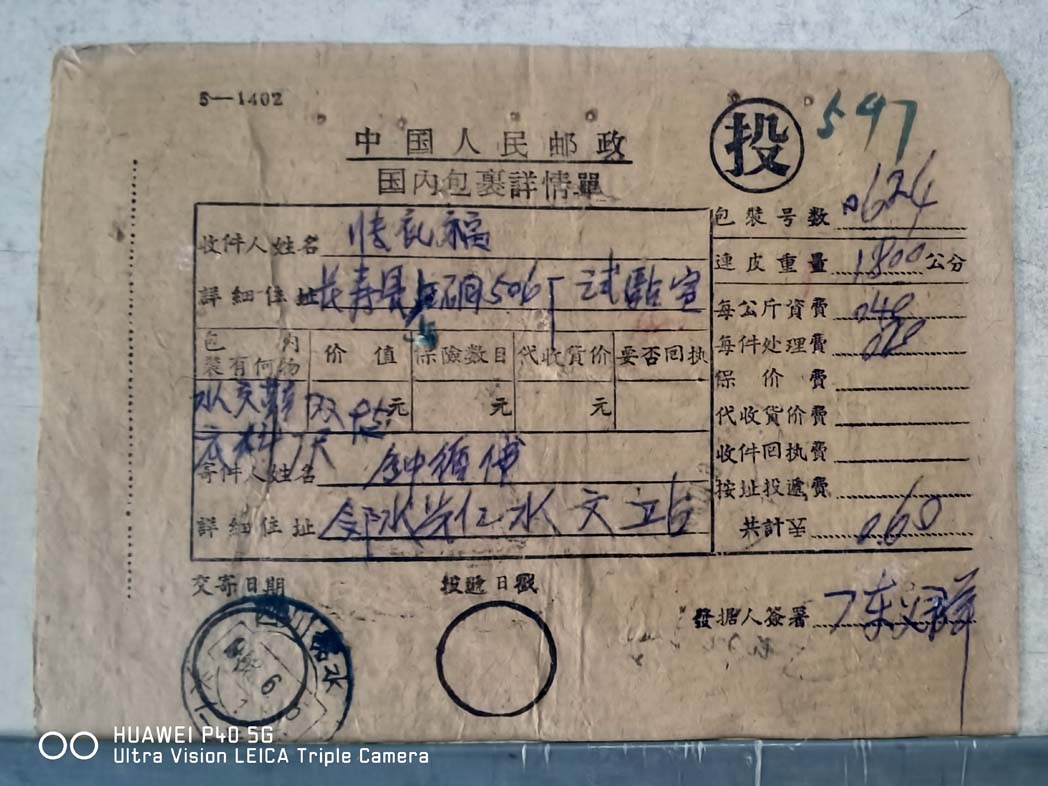 5—1402
中国人民邮政
国内包裹詳情單
投
597
包裝号数 624
收件人姓名 福
連皮重量 1800 公分
詳細住址 长寿县 506厂试驗室
每公斤資費 .40
包裝內有何物 价值 保險数目 代收貨价 要否回执
每件处理費 .20
保价費
水文鞋 双 元 元 元
代收貨价費
衣料
收件回执費
寄件人姓名 鈡德
按址投遞費
詳細住址 邻水 水文立占
共計￥ 0.60
交寄日期 投遞日戳
發据人簽署
四川邻水
6
HUAWEI P40 5G
Ultra Vision LEICA Triple Camera